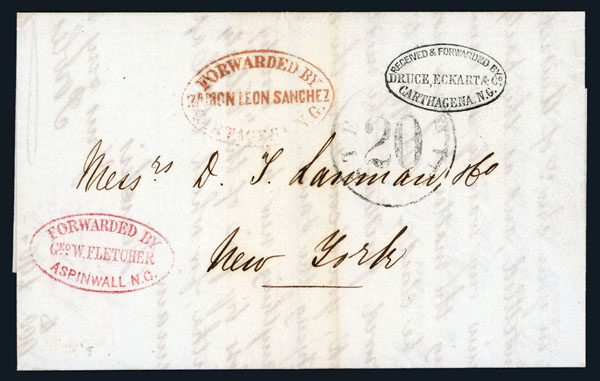 FORWARDED BY
RAMON LEON SANCHEZ
N.G.
RECEIVED & FORWARDED BY
DRUCE, ECKART & Cº
CARTHAGENA, N.G.
20
Messrs D. S. Lanman, & Co
FORWARDED BY
GEO. W. FLETCHER
ASPINWALL N.G.
New York